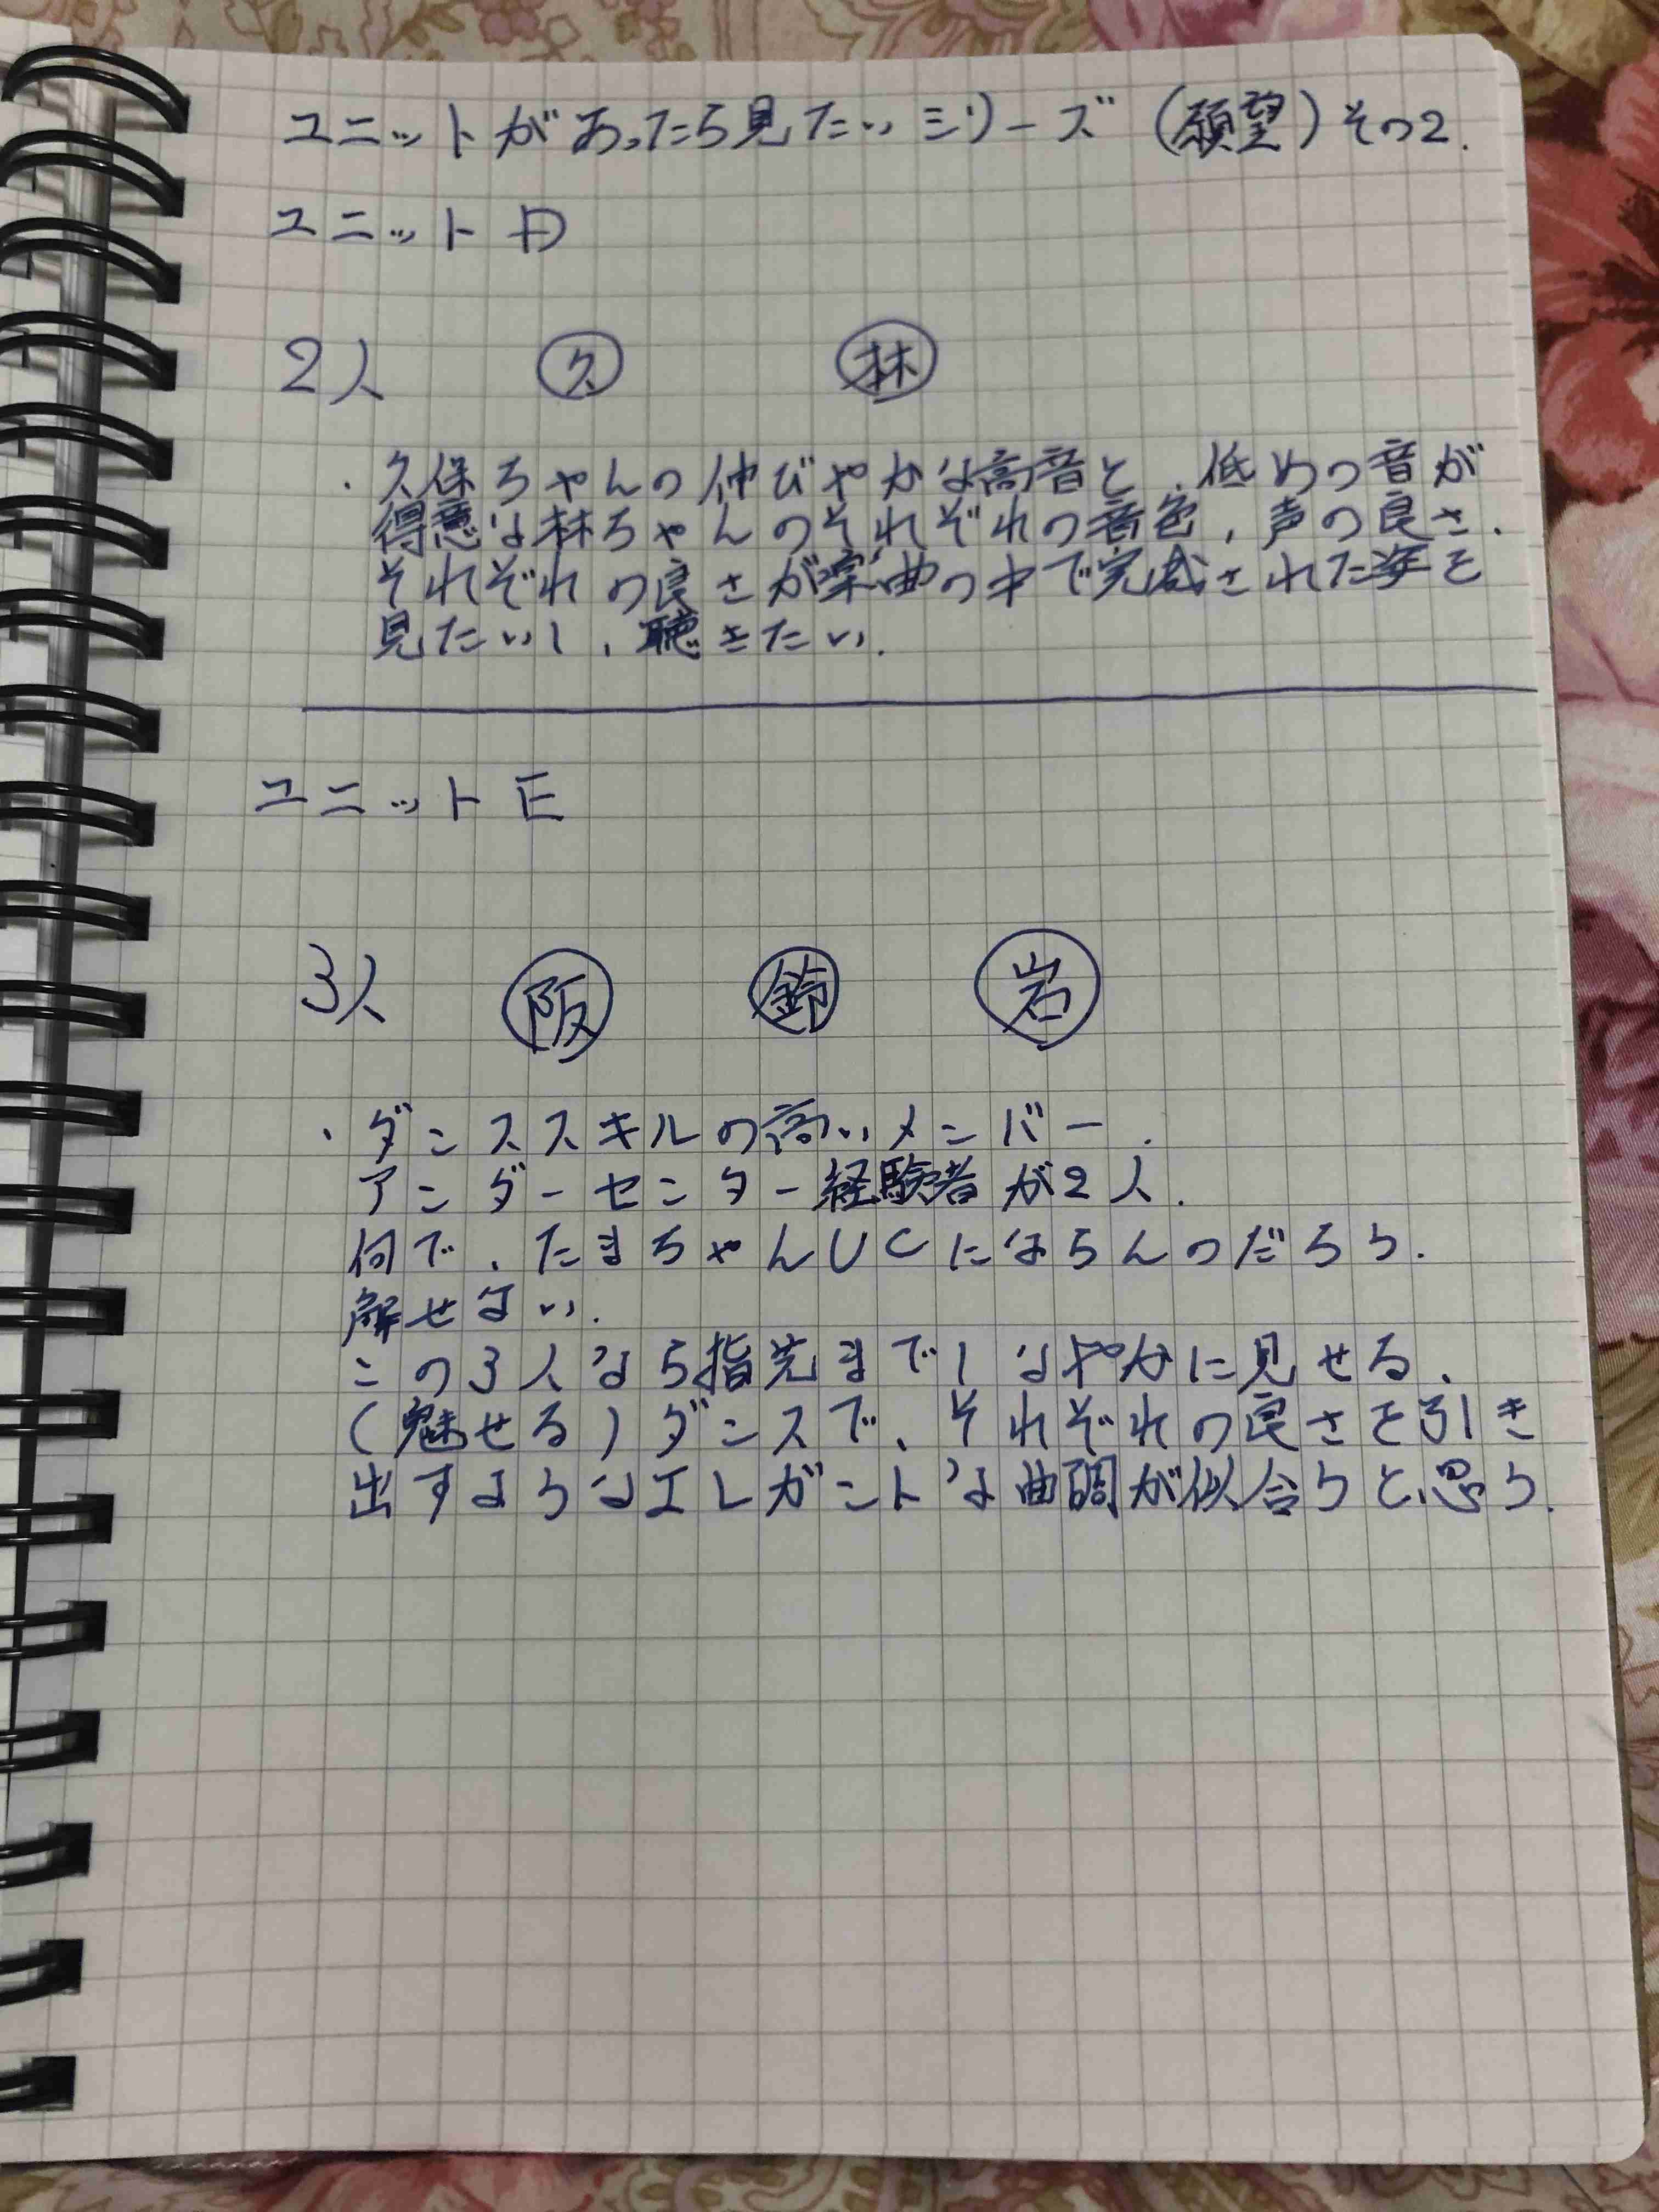 ユニットがあったら見たいシリーズ(願望)その2.
ユニット D
2人 久 林
・久保ちゃんの伸びやかな高音と、低めの音が
得意な林ちゃんのそれぞれの音色,声の良さ.
それぞれの良さが楽曲の中で完成された姿を
見たいし、聴きたい.
ユニット E
3人 阪 鈴 岩
・ダンススキルの高いメンバー.
アンダーセンター経験者が2人.
何で、たまちゃんUCにならんのだろう.
解せない.
この3人なら指先までしなやかに見せる、
(魅せる)ダンスで、それぞれの良さを引き
出すようなエレガントな曲調が似合うと思う.